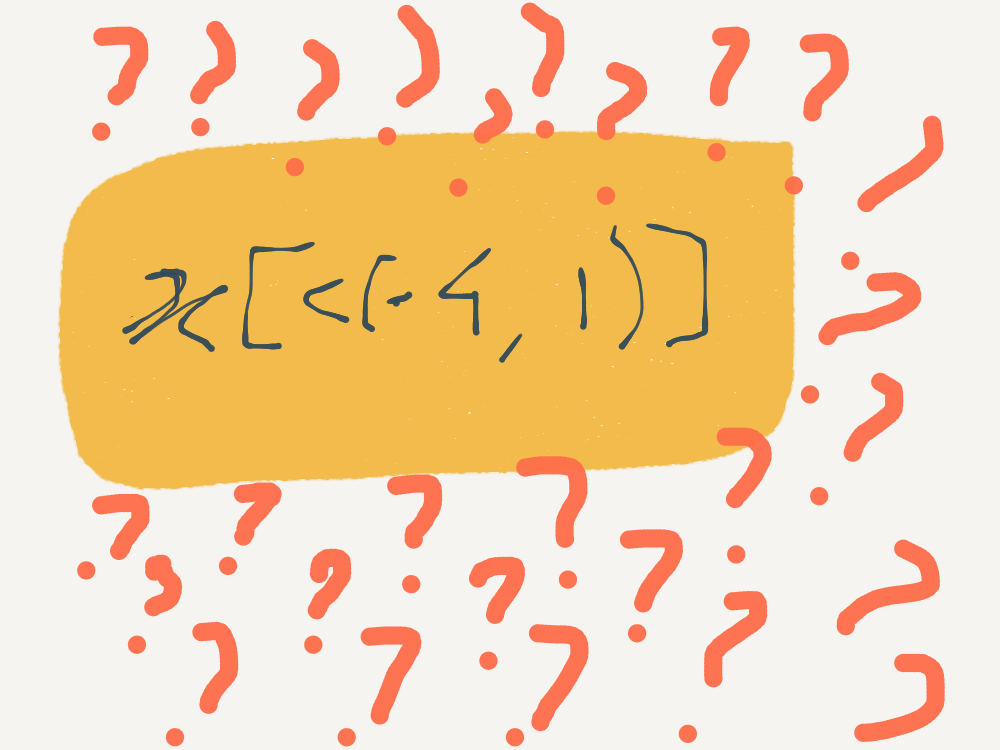 x[<(-4, 1)]